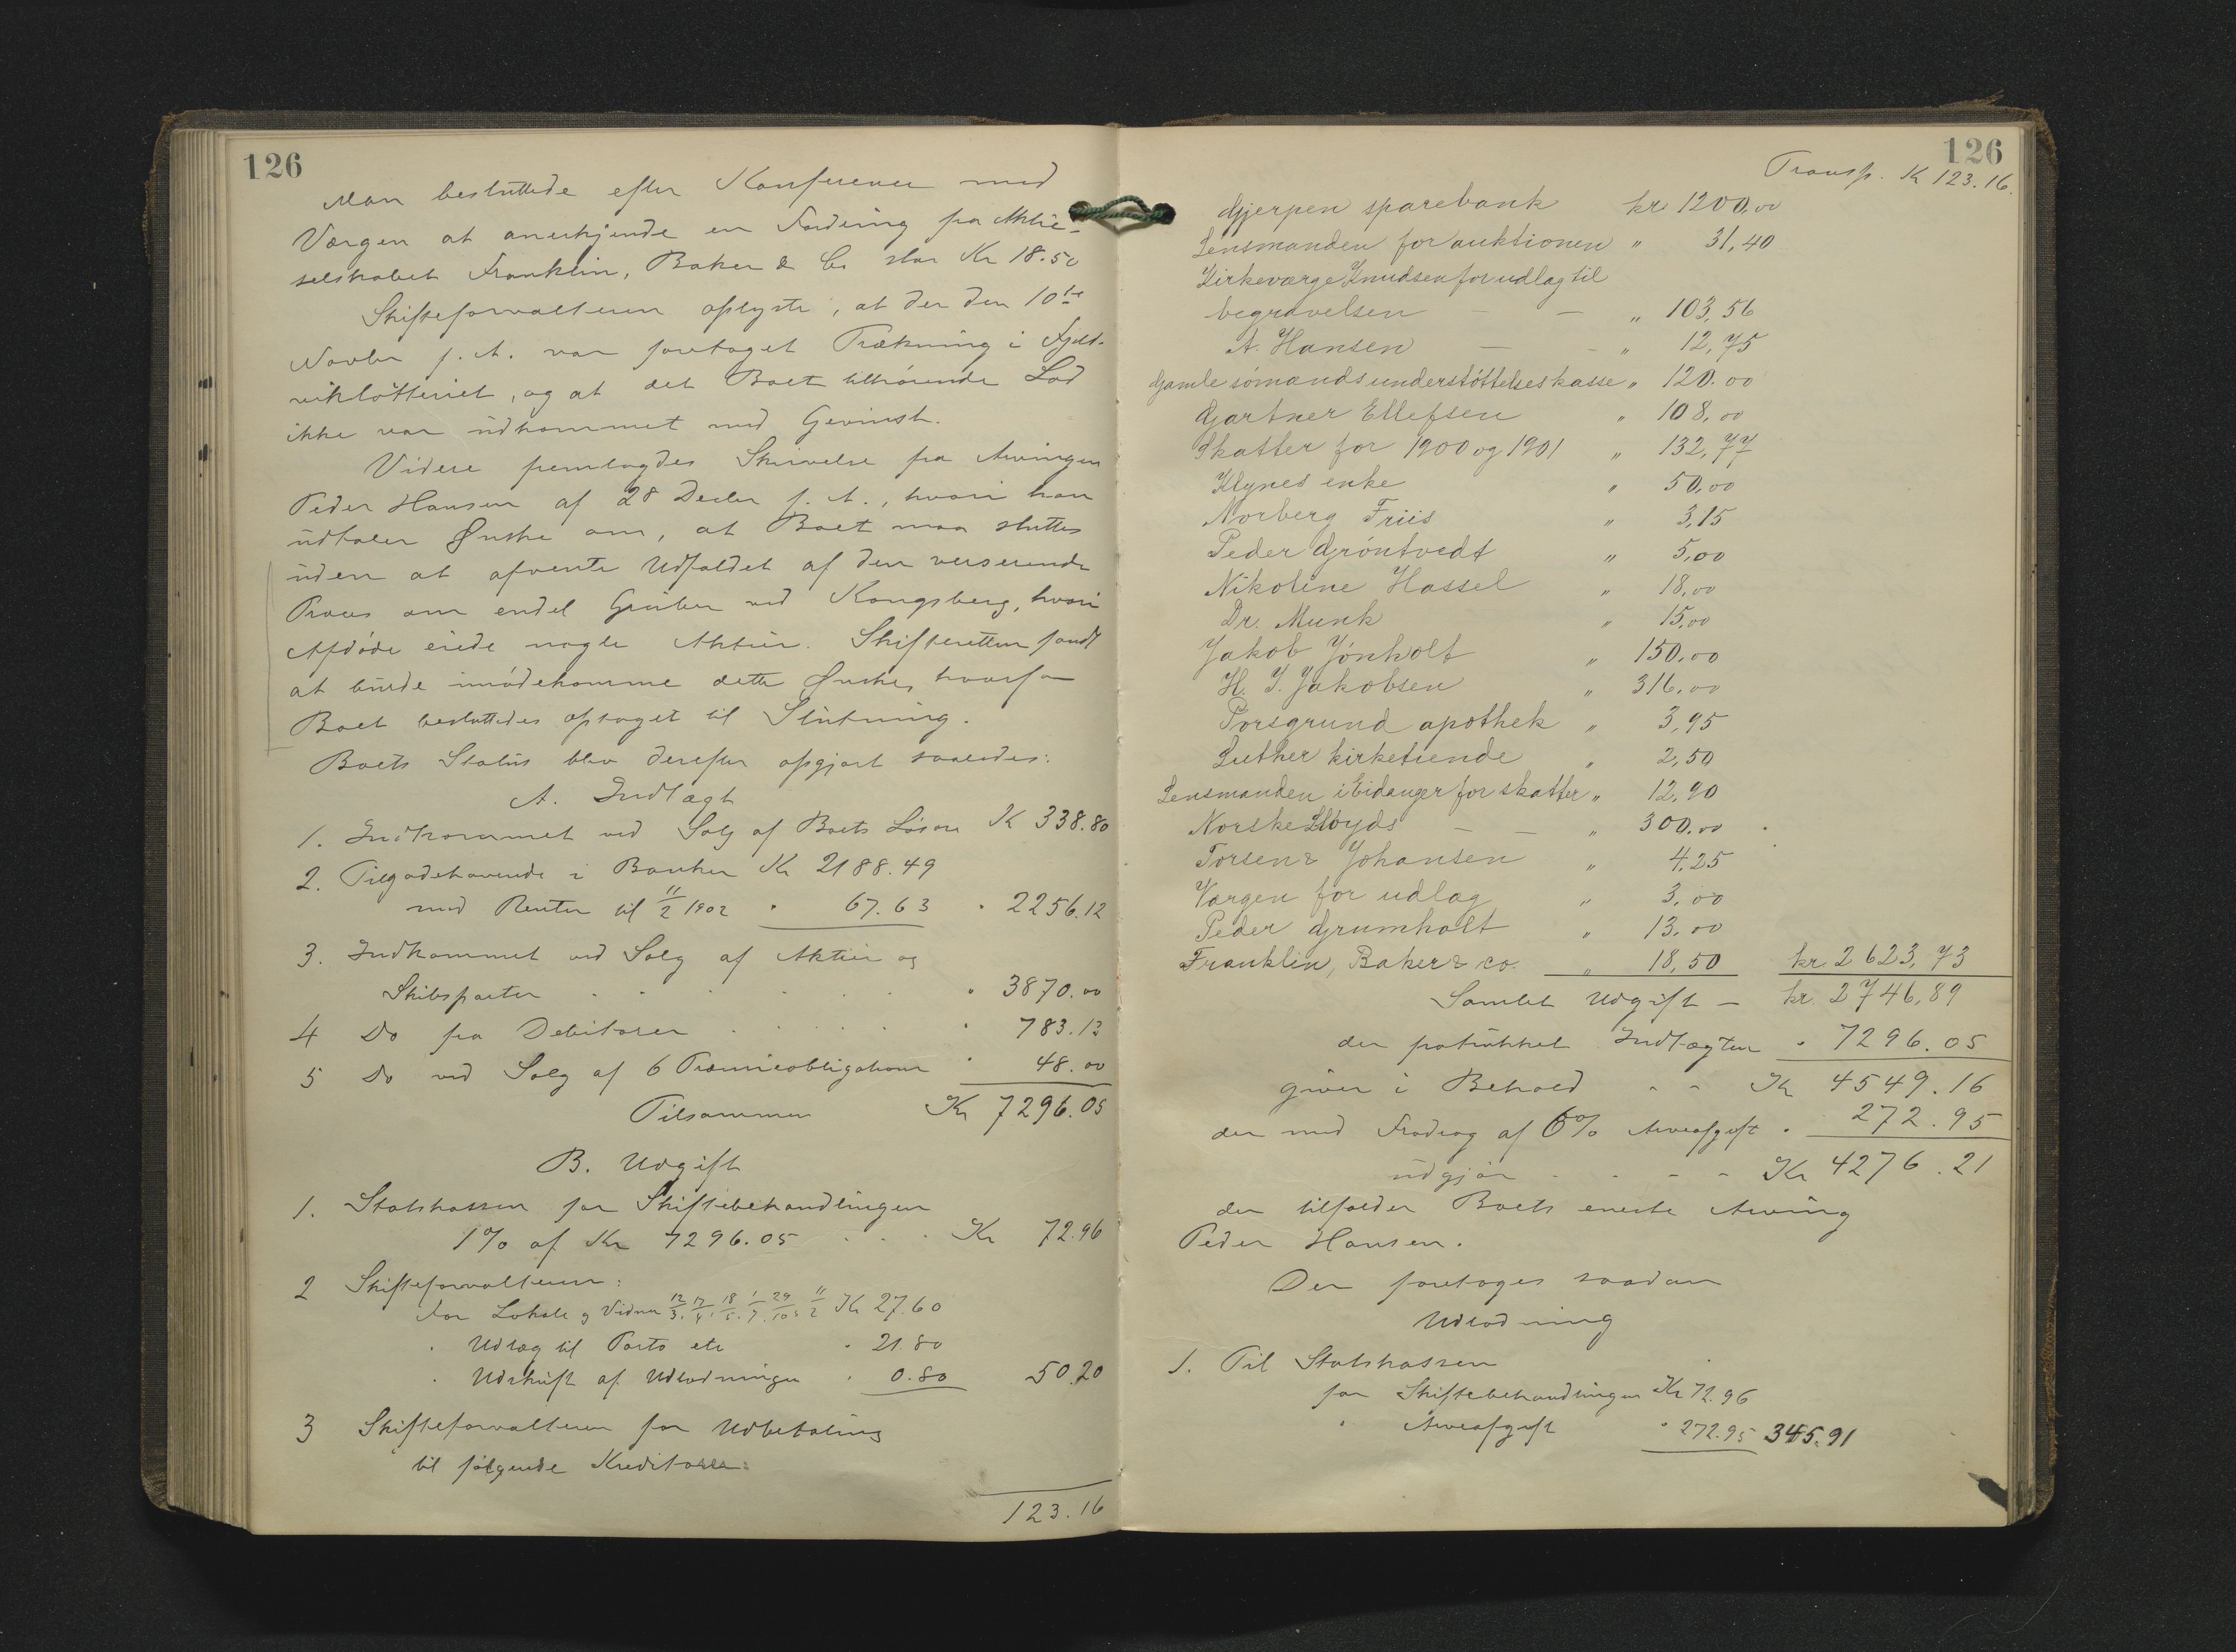 126
Man besluttede efter Konference med
Værgen at anerkjende en Fordring fra Aktie-
selskabet Franklin, Baker & Co stor Kr 18.50
Skifteforvalteren oplyste, at der den 10de
Novbr f. A. var foretaget Trækning i Fjeld-
viklotteriet, og at det Boet tilhørende Lod
ikke var udkommet med Gevinst.
Videre fremlagdes Skrivelse fra Arvingen
Peder Hansen af 28 Decbr f. A., hvori han
udtaler Ønske om, at Boet maa sluttes
uden at afvente Udfaldet af den verserende
Proces om endel Gruber ved Kongsberg, hvori
Afdøde eiede nogle Aktier. Skifteretten fandt
at burde imødekomme dette Ønske, hvorfor
Boet besluttedes optaget til Slutning.
Boets Status blev derefter opgjort saaledes:
A. Indtægt
1. Indkommet ved Salg af Boets Løsøre Kr 338.80
2. Tilgodehavende i Banken Kr 2188.49
med Renter til 11/2 1902 " 67.63 " 2256.12
3. Indkommet ved Salg af Aktier og
Skibsparter " 3870.00
4 Do fra Debitorer " 783.13
5 Do ved Salg af 6 Præmieobligationer " 48.00
Tilsammen Kr 7296.05
B. Udgift
1. Statskassen for Skiftebehandlingen
1% af Kr 7296.05 Kr 72.96
2 Skifteforvalteren:
For Lokale og Vidner 12/3. 17/4. 18/5. 1/7. 29/10. 11/2 Kr 27.60
" Udlæg til Porto etc " 21.80
" Udskrift af Udlodningen " 0.80 50.20
3 Skifteforvalteren for Udbetaling
til følgende Kreditorer:
123.16
126
Transp. Kr 123.16.
Gjerpen sparebank kr 1200,00
Lensmanden for auktionen " 31,40
Kirkeværge Knudsen for udlag til
begravelsen — — " 103,56
A. Hansen — - " 12,75
Gamle sømandsunderstøttelseskasse " 120.00
Gartner Ellefsen " 108,00
Skatter for 1900 og 1901 " 132,77
Klynes enke " 50,00
Norberg Friis " 3,15
Peder Grøntvedt " 5,00
Nikoline Hassel " 18,00
Dr. Munk " 15,00
Jakob Jønholt " 150,00
H. J. Jakobsen " 316,00
Porsgrund apothek " 3,95
Luther kirketiende " 2,50
Lensmanden i Eidanger for skatter " 12,90
Norske Lloyds — — " 300,00
Torsen & Johansen " 4,25
Værgen for udlag " 3,00
Peder Grumholt " 13,00
Franklin, Baker & co. " 18,50 kr. 2623,73
Samlet Udgift — kr. 2746,89
der fratrukket Indtægten " 7296.05
giver i Behold - - Kr 4549.16
der med Fradrag af 6% Arveafgift " 272.95
udgjør - - - Kr 4276.21
der tilfalder Boets eneste Arving
Peder Hansen.
Der foretages saadan
Udlodning
1. Til Statskassen
for Skiftebehandlingen Kr 72.96
" Arveafgift " 272.95 345.91